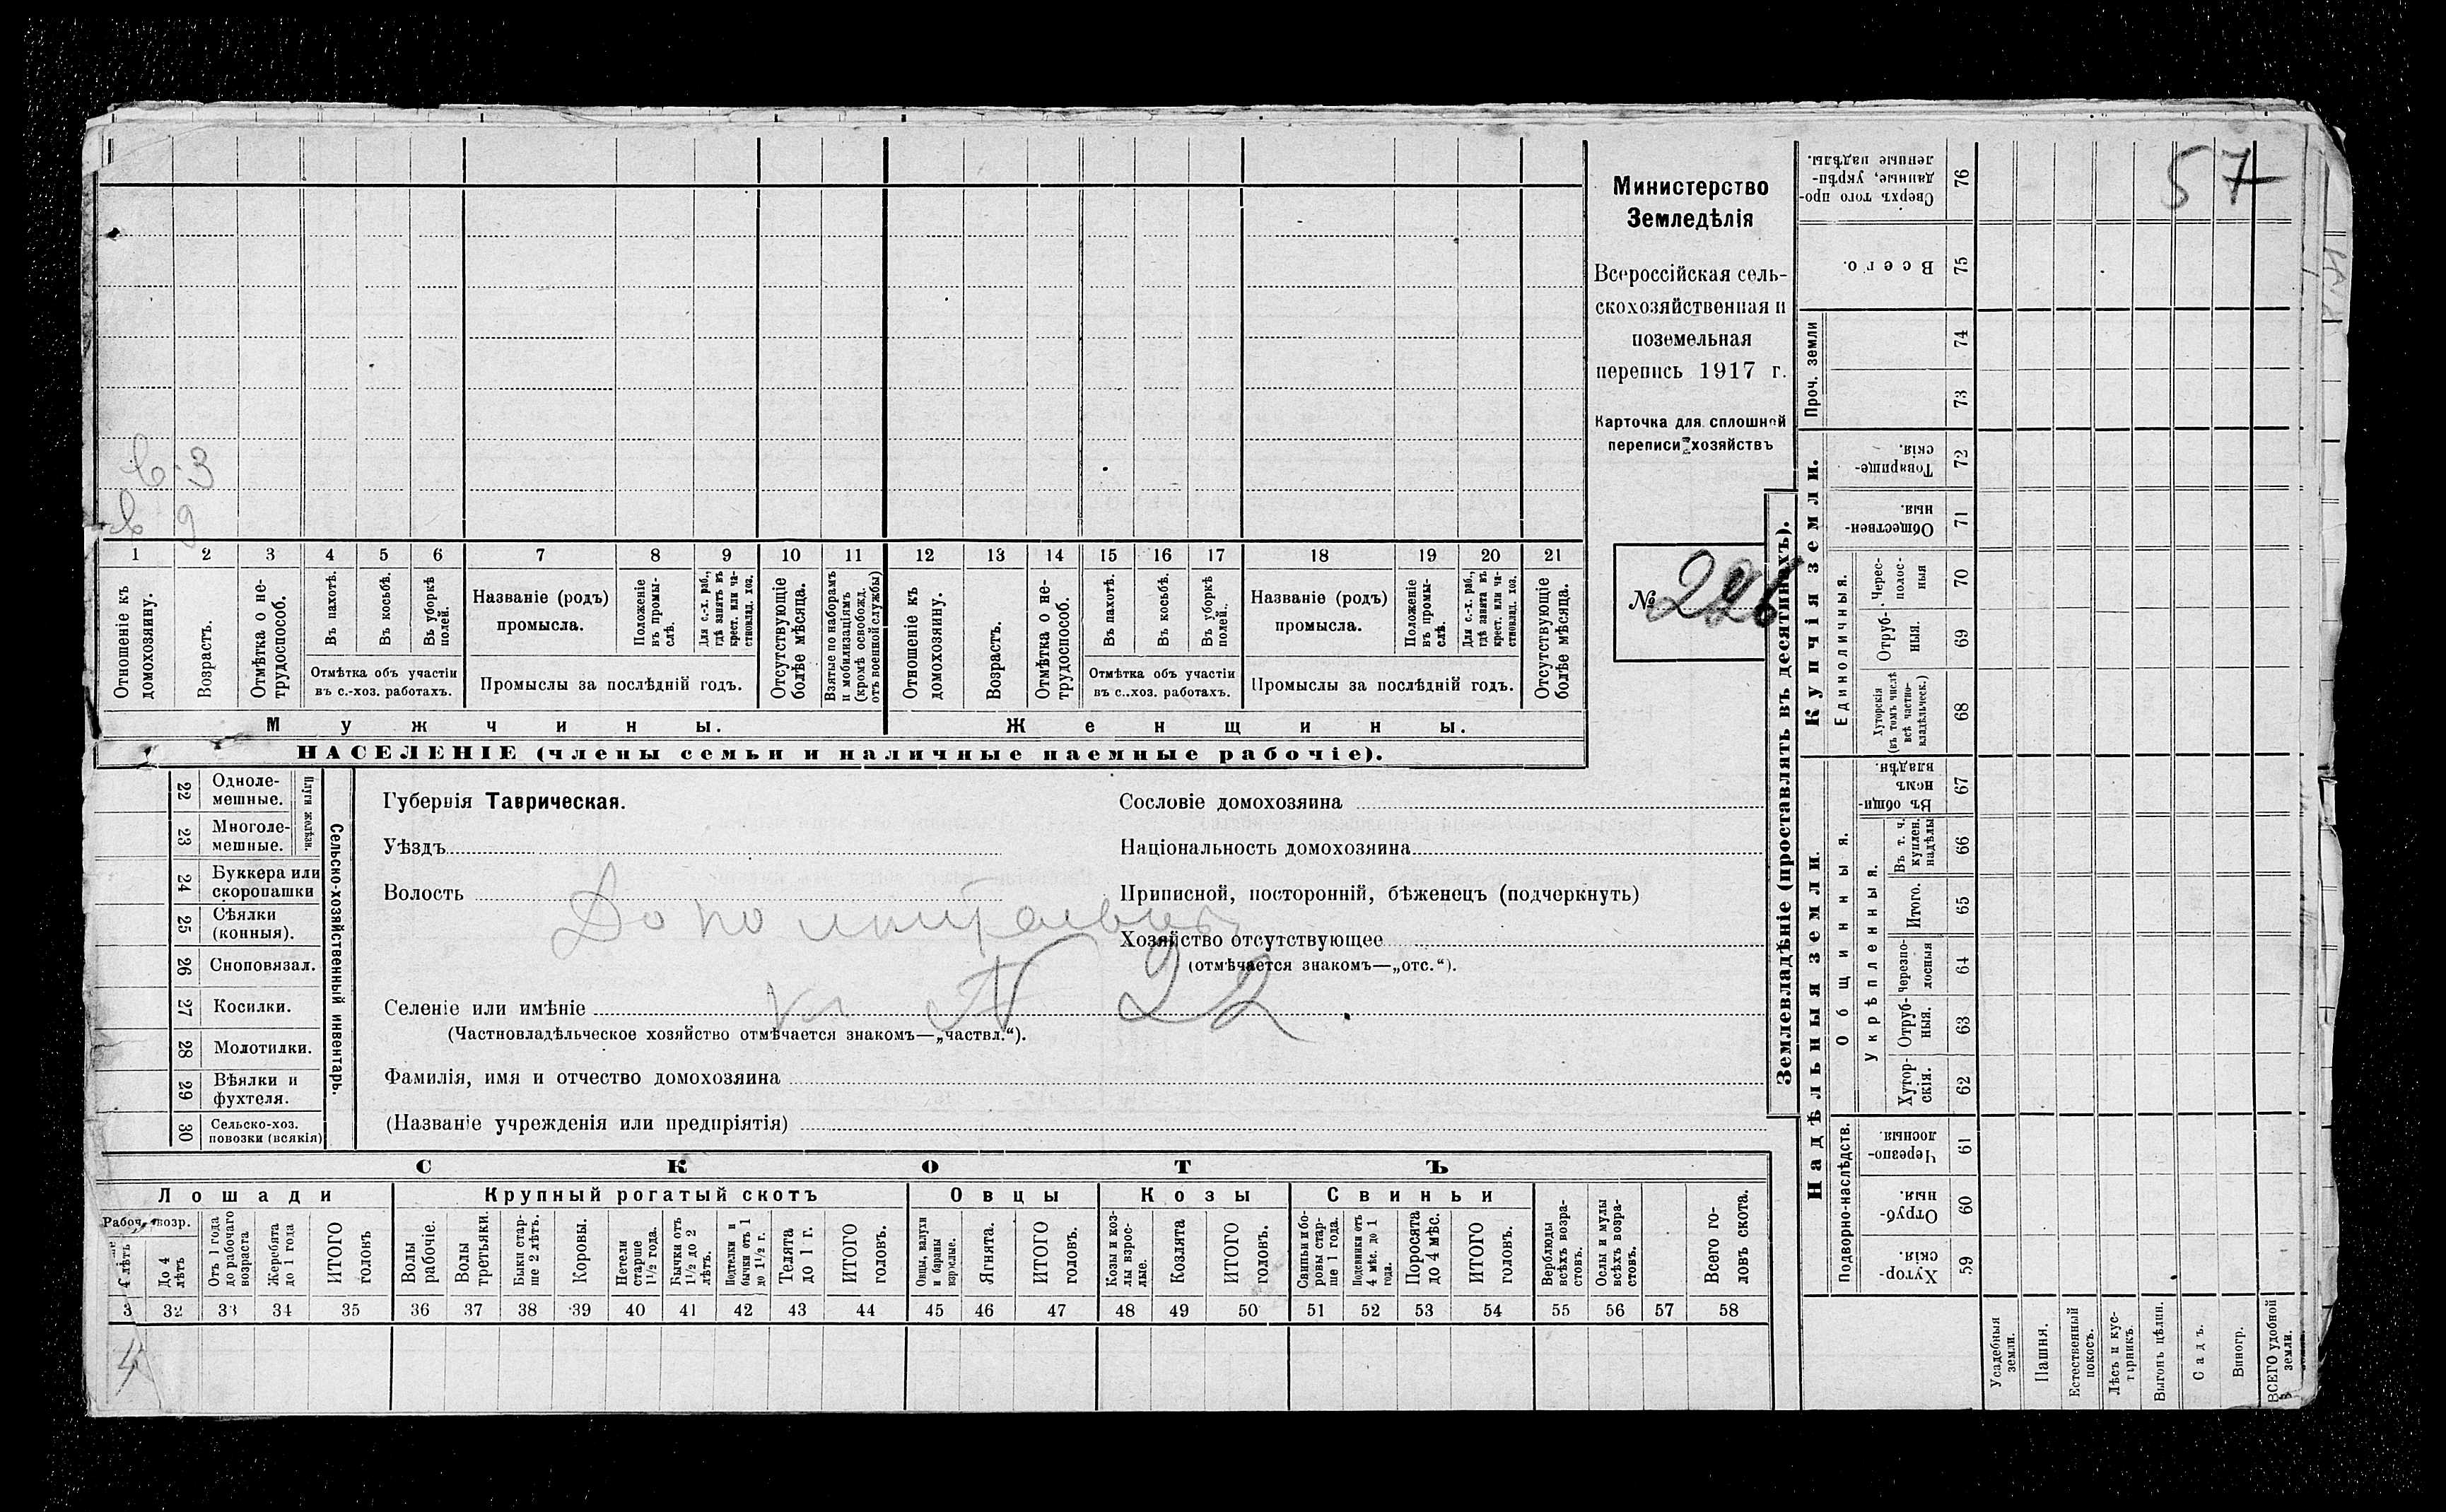 57
Министерство
Земледѣлія
Всероссійская сель-
скохозяйственная и
поземельная
перепись 1917 г.
Карточка для сплошной
переписи хозяйствъ
№
в. 3
в 9
1 2 3 4 5 6 7 8 9 10 11 12 13 14 15 16 17 18 19 20 21
Отношеніе къ домохозяину.
Возрастъ.
Отмѣтка о не-трудоспособ.
Въ пахотѣ.
Въ косьбѣ.
Въ уборкѣ полей.
Отмѣтка объ участіи
въ с.-хоз. работахъ.
Названіе (родъ)
промысла.
Положеніе въ промы-слѣ.
Для с.-х. раб., гдѣ занятъ въ крест. или ча-стновлад. хоз.
Промыслы за послѣдній годъ.
Отсутствующіе болѣе мѣсяца.
Взятые по наборамъ и мобилизаціямъ (кромѣ освобожд. отъ военной службы)
Отношеніе къ домохозяину.
Возрастъ.
Отмѣтка о не-трудоспособ.
Въ пахотѣ.
Въ косьбѣ.
Въ уборкѣ полей.
Отмѣтка объ участіи
въ с.-хоз. работахъ.
Названіе (родъ)
промысла.
Положеніе въ промы-слѣ.
Для с.-х. раб., гдѣ занята въ крест. или ча-стновлад. хоз.
Промыслы за послѣдній годъ.
Отсутствующіе болѣе мѣсяца.
Мужчины.
Женщины.
НАСЕЛЕНІЕ (члены семьи и наличные наемные рабочіе).
22 Одноле-мешные.
23 Многоле-мешные.
Плуги желѣзн.
24 Буккера или скоропашки
25 Сѣялки (конныя).
26 Сноповязал.
27 Косилки.
28 Молотилки.
29 Вѣялки и фухтеля.
30 Сельско-хоз. повозки (всякія)
Сельско-хозяйственный инвентарь.
Губернія Таврическая.
Уѣздъ
Волость
Сословіе домохозяина
Національность домохозяина
Приписной, посторонній, бѣженецъ (подчеркнуть)
Хозяйство отсутствующее
(отмѣчается знакомъ—„отс.“).
къ № 22
Селеніе или имѣніе
(Частновладѣльческое хозяйство отмѣчается знакомъ—„частвл.“).
Фамилія, имя и отчество домохозяина
(Названіе учрежденія или предпріятія)
СКОТЪ
Лошади
Крупный рогатый скотъ
Овцы
Козы
Свиньи
Рабоч. возр.
4 лѣтъ
До 4 лѣтъ
Отъ 1 года до рабочаго возраста
Жеребята до 1 года
ИТОГО головъ
Волы рабочіе.
Волы третьяки.
Быки стар-ше 2 лѣтъ.
Коровы.
Нетели старше 1½ года.
Бычки отъ 1½ до 2 лѣтъ.
Подтелки и бычки отъ 1 до 1½ г.
Телята до 1 г.
ИТОГО головъ.
Овцы, валухи и бараны взрослые.
Ягнята.
ИТОГО головъ.
Козы и коз-лы взрос-лые.
Козлята
ИТОГО головъ.
Свиньи и бо-ровы стар-ше 1 года.
Подсвинки отъ 4 мѣс. до 1 года.
Поросята до 4 мѣс.
ИТОГО головъ.
Верблюды всѣхъ возра-стовъ.
Ослы и мулы всѣхъ возра-стовъ.
Всего го-ловъ скота.
3 32 33 34 35 36 37 38 39 40 41 42 43 44 45 46 47 48 49 50 51 52 53 54 55 56 57 58
4
Землевладѣніе (проставлять въ десятинахъ).
Надѣльныя земли.
Купчія земли.
Проч. земли
Подворно-наслѣдств.
Общинныя.
Укрѣпленныя.
Единоличныя.
76 Сверхъ того про-данные, укрѣп-ленные надѣлы.
75 Всего.
74
73
72 Товарище-скія.
71 Обществен-ныя
70 Черес-полос-ныя
69 Отруб-ныя.
68 Хуторскія (въ томъ числѣ всѣ частно-владѣльческ.)
67 Въ общи-номъ владѣн.
66 Въ т. ч. куплен. надѣлы
65 Итого.
64 Черезпо-лосныя
63 Отруб-ныя.
62 Хутор-скія.
61 Черезпо-лосныя.
60 Отруб-ныя.
59 Хутор-скія.
Усадебныя земли.
Пашня.
Естественный покосъ.
Лѣсъ и кус-тарникъ.
Выгонъ цѣлин.
Садъ.
Виногр.
ВСЕГО удобной земли.